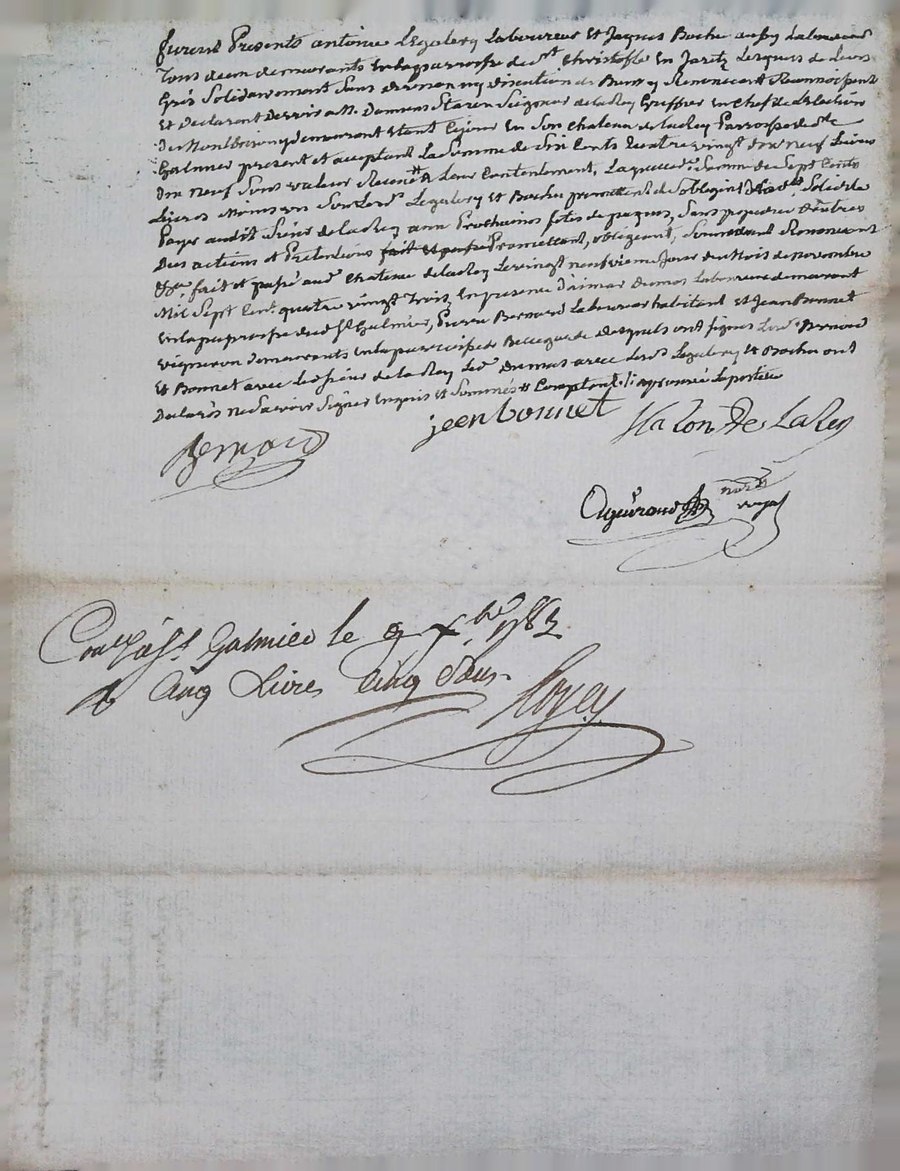 furent Presents antoine Legalery Laboureur Et Jaques Bocha aussy Laboureur
Tous deux demeurants En laparroisse de St Christofle En Jarêtz Lesquels de Leurs
Grés Solidairement Sans division ny discution de Biens y Renoncent Reconnoissent
Et Declarent Devoir a M. Damien Staron Seigneur de la Rey Greffier En chef de Lélection
de Montbrison y demeurant étant Cejour En Son chateau de la Rey Parroisse de St
Galmier present et acceptant La Somme de Six Cents quatre vingt dix neuf Livres
dix neuf Sous valeur Leur Contentement, Laquelle Somme de Sept Cents
Livres Moins un Sou Les Legalery Et Bocha promettent de Solid.
Payer audit Sieur de la Rey aux Prochaines fêtes de paques, Sans d'autres
Des actions et Pretentions fait et passé Promettant, obligeant, Renoncant
fait et passé aud. chateau de la Rey Le vingt neufvieme Jour du Mois de novembre
Mil Sept Cent quatre vingt Trois En presence D'aimar Dumas Laboureur demeurant
En la parroisse dud. St Galmier, Pierre Bernard Laboureur habitant Et Jean Bonnet
vigneron demeurants En la parroisse de desquels ont signés Les d. Bernard
Et Bonnet avec Led. Sieur de la Rey Led. Dumas avec Lesd. Legalery Et Bocha ont
Declarés ne Savoir Signer Enquis et Sommés Comptant
Bernard
jean bonnet
Staron De La Rey
Not. royal
Con.lé à St. Galmier le 8 Xbre 1783
R Cinq Livres Cinq Sous